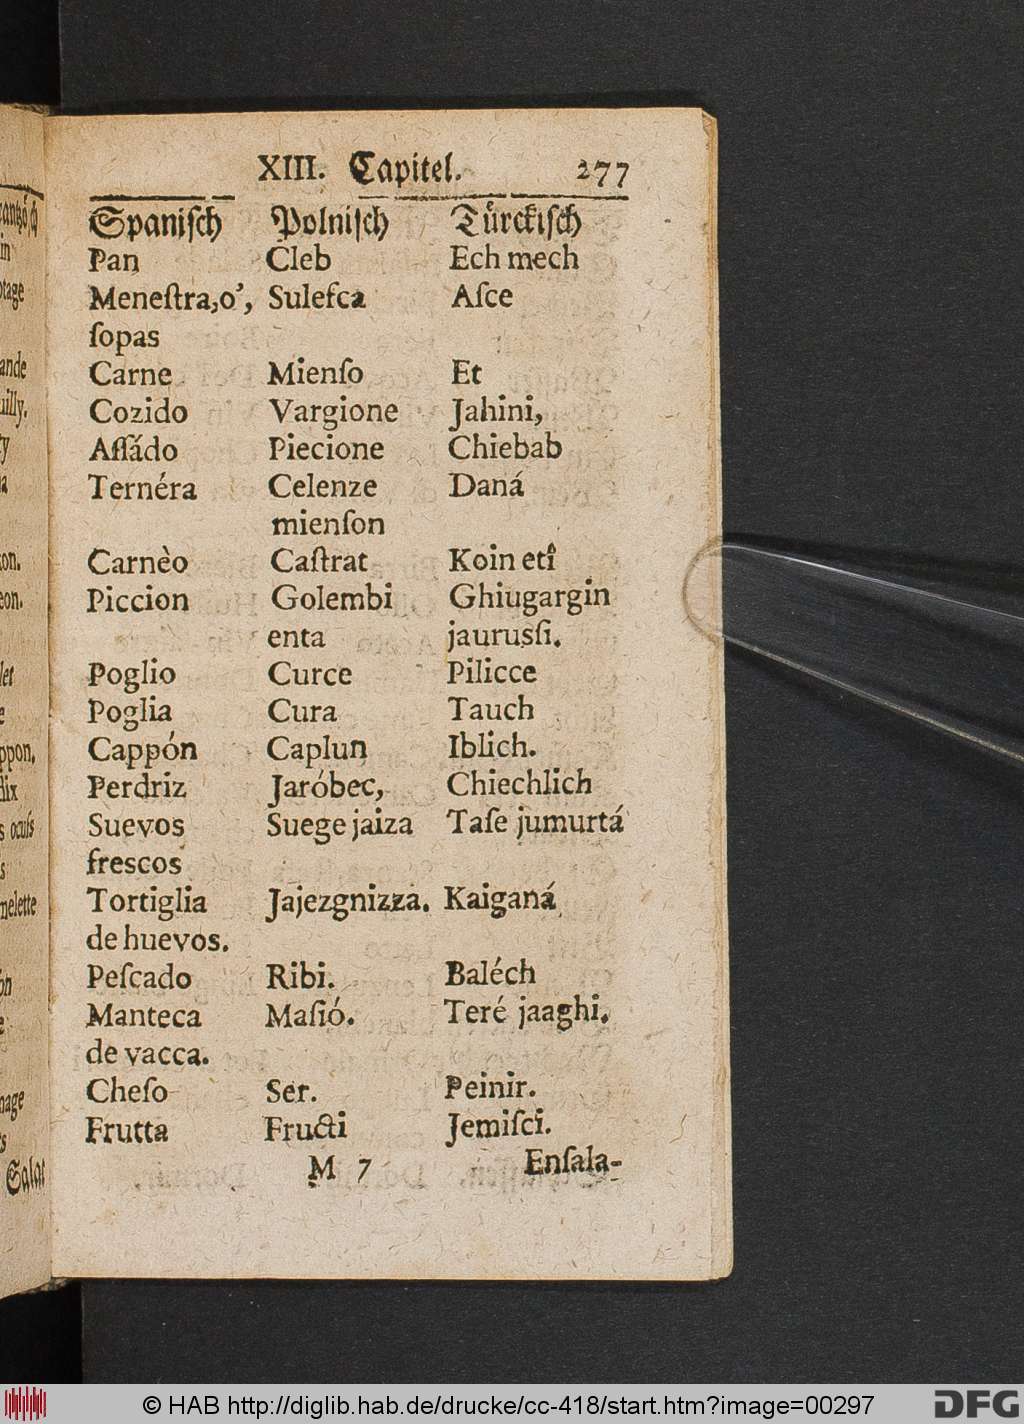 XIII. Capitel. 277
Spaniſch Polniſch Türckiſch
Pan Cleb Ech mech
Meneſtra,o', Suleſca Aſce
ſopas
Carne Mienſo Et
Cozido Vargione Jahini,
Aſſádo Piecione Chiebab
Ternéra Celenze Daná
mienſon
Carnèo Caſtrat Koin eti
Piccion Golembi Ghiugargin
enta jaurusſi.
Poglio Curce Pilicce
Poglia Cura Tauch
Cappón Caplun Iblich.
Perdriz Jaróbec, Chiechlich
Suevos Suege jaiza Taſe jumurtá
frescos
Tortiglia Jajezgnizza. Kaiganá
de huevos.
Peſcado Ribi. Baléch
Manteca Maſió. Teré jaaghi.
de vacca.
Cheſo Ser. Peinir.
Frutta Fructi Jemiſci.
M 7 Enſala-
© HAB http://diglib.hab.de/drucke/cc-418/start.htm?image=00297
DFG